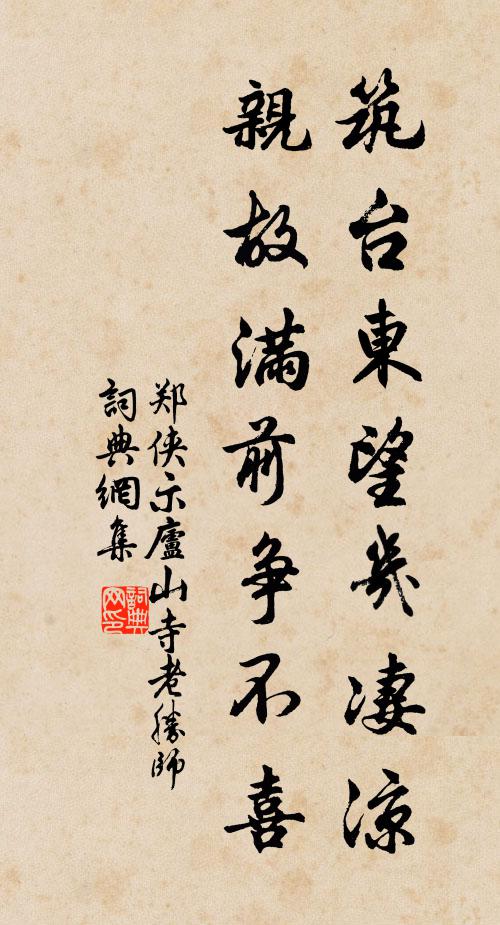 筑台東望幾凄涼
親故滿前争不喜
郑侠示廬山寺老勝師
詞典網集
詞典网印